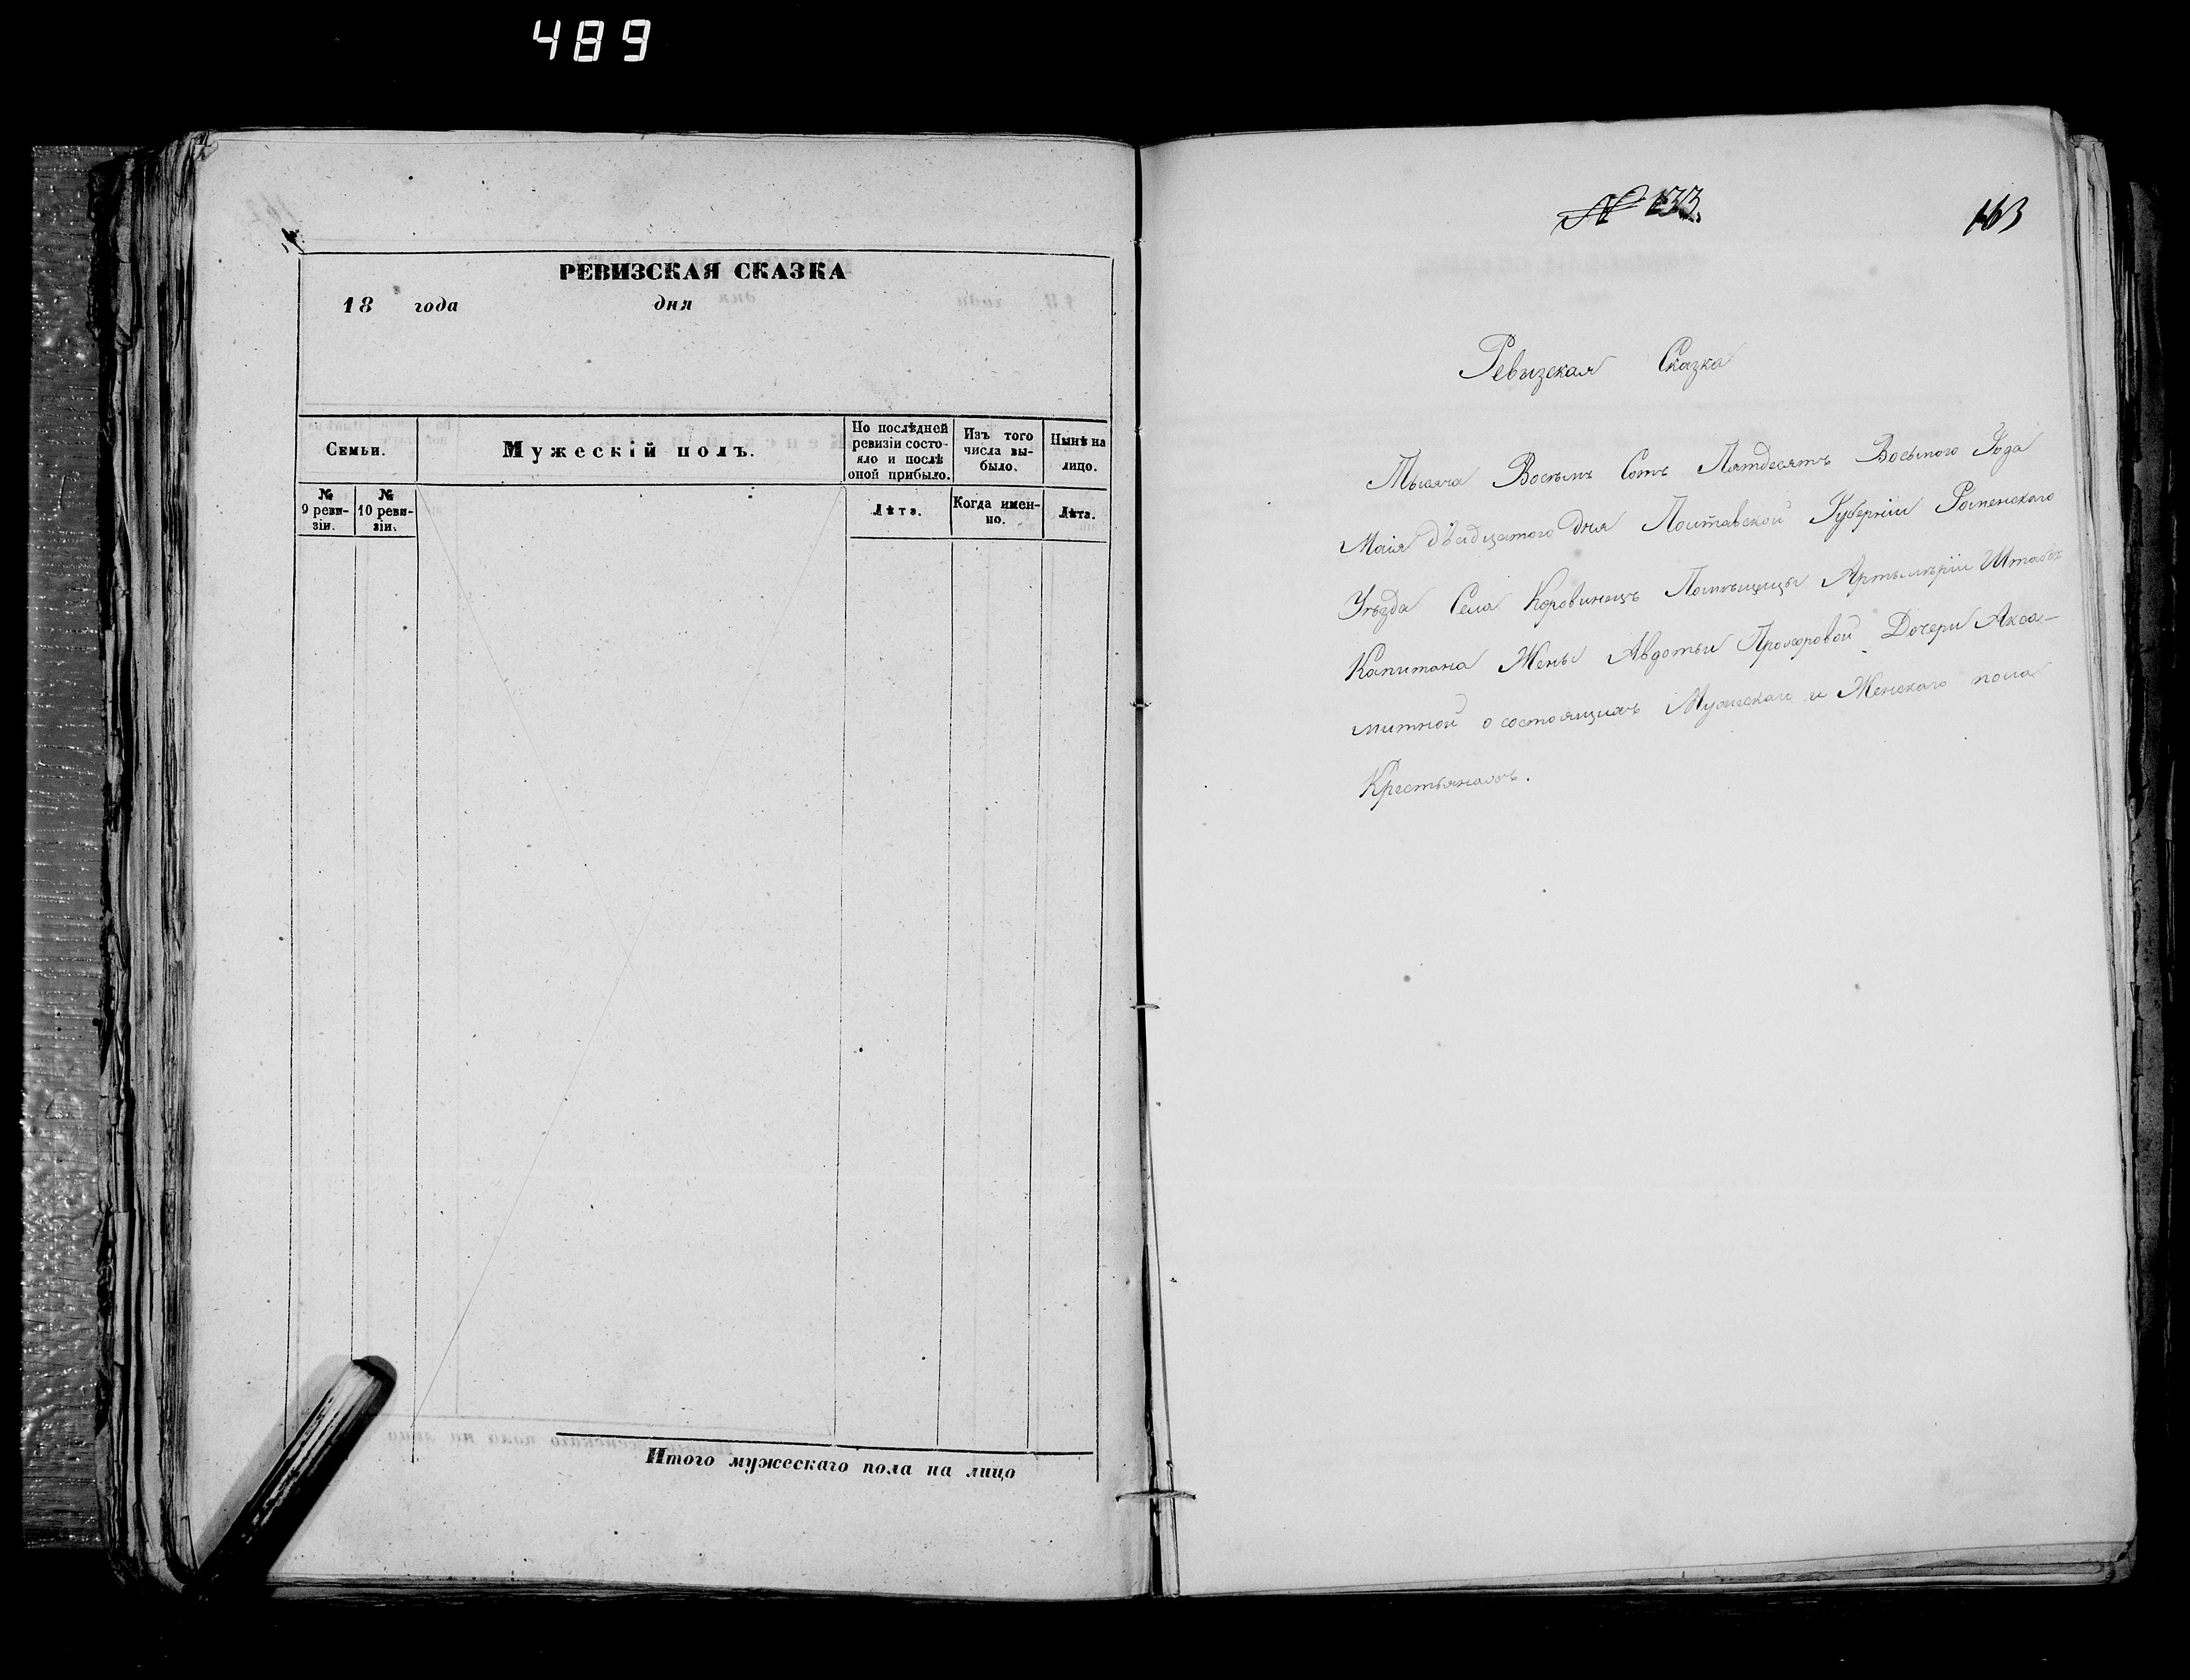 489
РЕВИЗСКАЯ СКАЗКА
18 года дня
Семьи.
Мужескій полъ.
По послѣдней ревизіи состо-
яло и послѣ оной прибыло.
Изъ того числа вы-
было.
Нынѣ на лицо.
№ 9 реви-
зіи.
№ 10 реви-
зіи.
Лѣта.
Когда имен-
но.
Лѣта.
Итого мужескаго пола на лицо
№ 133.
163
Ревызская Сказка
Тысяча Восемь Сотъ Пятдесятъ Восьмого Года
Маія двадцатого дня Полтавской Губерніи Роменского
Уѣзда Села Коровинецъ Помѣщицы Артылѣріи Штабсъ
Капитана Жены Авдотьи Прохоровой Дочери Акса-
митной о состоящихъ Мужескаго и Женскаго пола
Крестьянахъ.